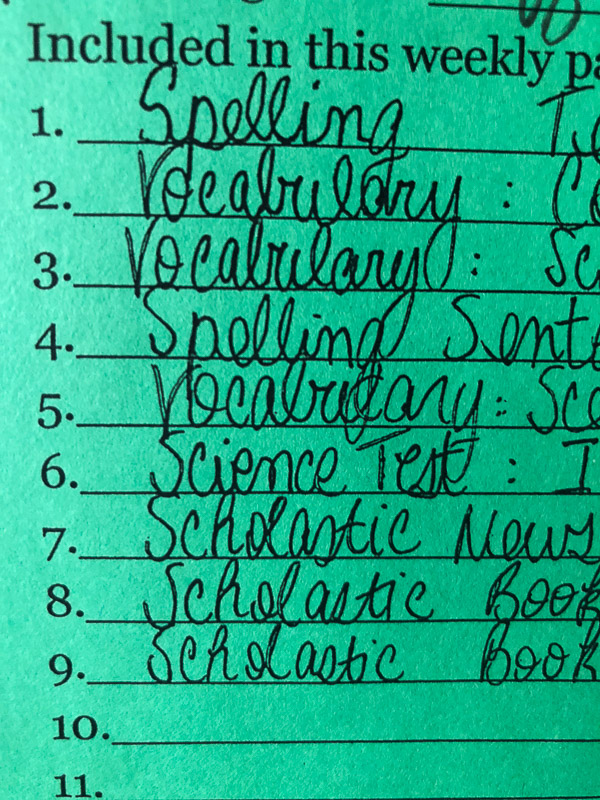 Included in this weekly pa
1. Spelling Te
2. Vocabulary : Co
3. Vocabulary : Sc
4. Spelling Sente
5. Vocabulary : Sce
6. Science Test : I
7. Scholastic News
8. Scholastic Book
9. Scholastic Book
10.
11.